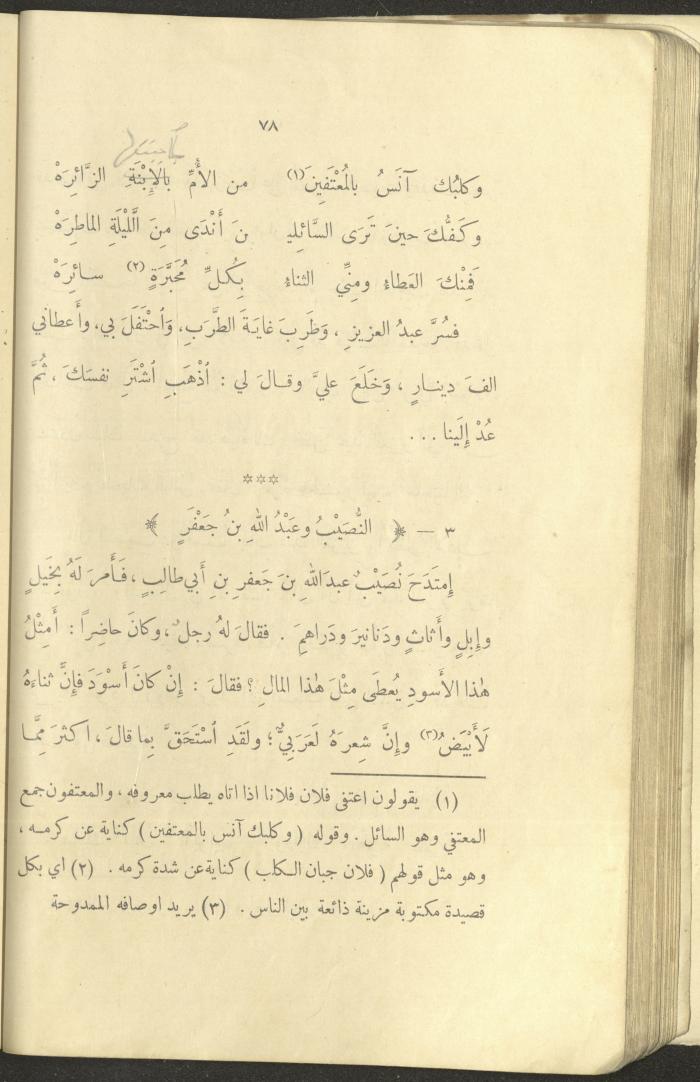 ٧٨
بابنتها
وكلبُك آنَسُ بالمُعْتَفِينَ(١) من الأُمِّ بالإِبْنَةِ الزَّائِرَهْ
وكَفُّكَ حينَ تَرَى السَّائِلِيـ ـنَ أَنْدَى مِنَ الَّليْلَةِ الماطِرَهْ
فَمِنْكَ العَطاءُ ومِنِّي الثناءُ بِكُلِّ مُحَبَّرَةٍ(٢) سائِرَهْ
فسُرَّ عبدُ العزيزِ ، وَطَرِبَ غايَةَ الطَّرَبِ، وَٱحْتَفَلَ بي، وأَعطاني
الفَ دينارٍ ، وَخَلَعَ عليَّ وقالَ لي : ٱذْهَبِ ٱشْتَرِ نفسَكَ ، ثُمَّ
عُدْ إِلَينا ...
***
٣ — ﴿ النُّصَيْبُ وعَبْدُ اللهِ بنُ جَعْفَرٍ ﴾
إِمتَدَحَ نُصَيْبٌ عبدَاللهِ بنَ جَعفرِ بنِ أَبي طالِبٍ ، فَأَمرَ لَهُ بِخَيلٍ
وإِبِلٍ وأَثاثٍ ودَنانيرَ ودَراهِمَ . فقالَ لهُ رجلٌ ، وكانَ حاضِراً : أَمِثْلُ
هٰذا الأَسودِ يُعطَى مِثْلَ هٰذا المالِ ؟ فقالَ : إِنْ كانَ أَسْوَدَ فإِنَّ ثناءَهُ
لَأَبْيَضُ(٣) وإِنَّ شِعرَهُ لَعَرَبيٌّ ؛ ولَقَدِ ٱسْتَحَقَّ بِما قالَ ، اكثرَ مِمَّا
(١) يقولون اعتفى فلان فلانا اذا اتاه يطلب معروفه ، والمعتفون جمع
المعتفي وهو السائل . وقوله ( وكلبك آنس بالمعتفين ) كناية عن كرمه ،
وهو مثل قولهم ( فلان جبان الكلب ) كناية عن شدة كرمه . (٢) اي بكل
قصيدة مكتوبة مزينة ذائعة بين الناس . (٣) يريد اوصافه الممدوحة